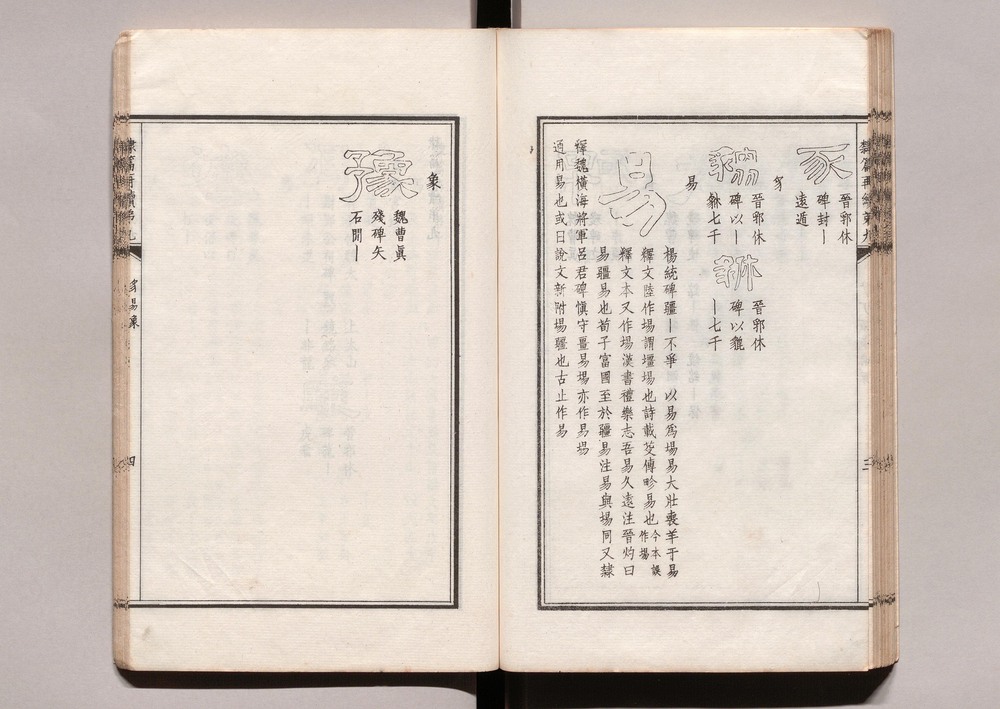 隸篇再續第九
三
豕
晉郛休
碑封丨
遠遁
豸
貔
晉郛休
碑以丨
貅七千
貅
晉郛休
碑以貔
丨七千
易
易
楊統碑疆丨不爭 以易爲埸易大壯喪羊于易
釋文陸作埸謂壃埸也詩載芟傳畛易也今本誤作埸
釋文本又作埸漢書禮樂志吾易久遠注晉灼曰
易疆易也荀子富國至於疆易注易與埸同又隸
釋魏橫海將軍呂君碑慎守畺易埸亦作易埸
通用易也或曰說文新附埸疆也古止作易
象
豫
魏曹眞
殘碑矢
石閒丨
隸篇再續第九
豸易象
四